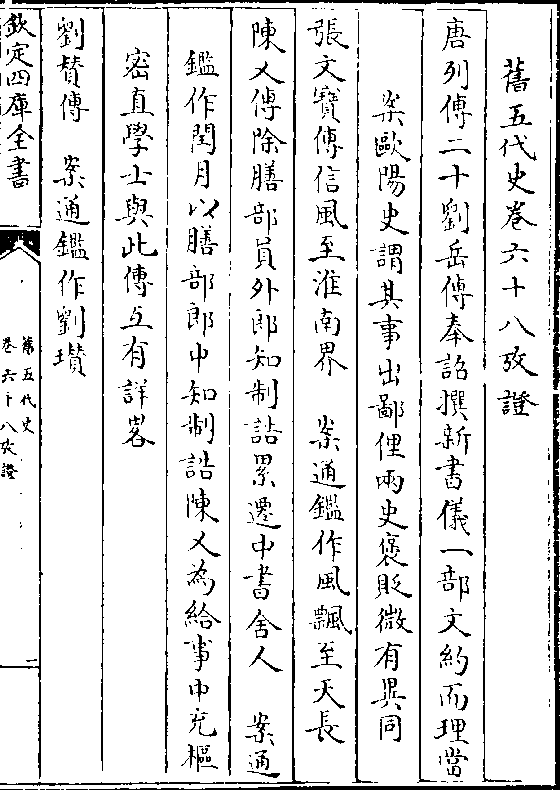 舊五代史卷六十八攷證
唐列傳二十劉岳傳奉詔撰新書儀一部文約而理當
案歐陽史謂其事出鄙俚兩史褒貶微有異同
張文寶傳信風至淮南界　案通鑑作風飄至天長
陳乂傳除膳部員外郎知制誥累遷中書舍人　案通
鑑作閏月以膳部郎中知制誥陳乂為給事中充樞
密直學士與此傳互有詳畧
劉賛傳　案通鑑作劉瓚
欽定四庫全書
舊五代史
卷六十八攷證
二